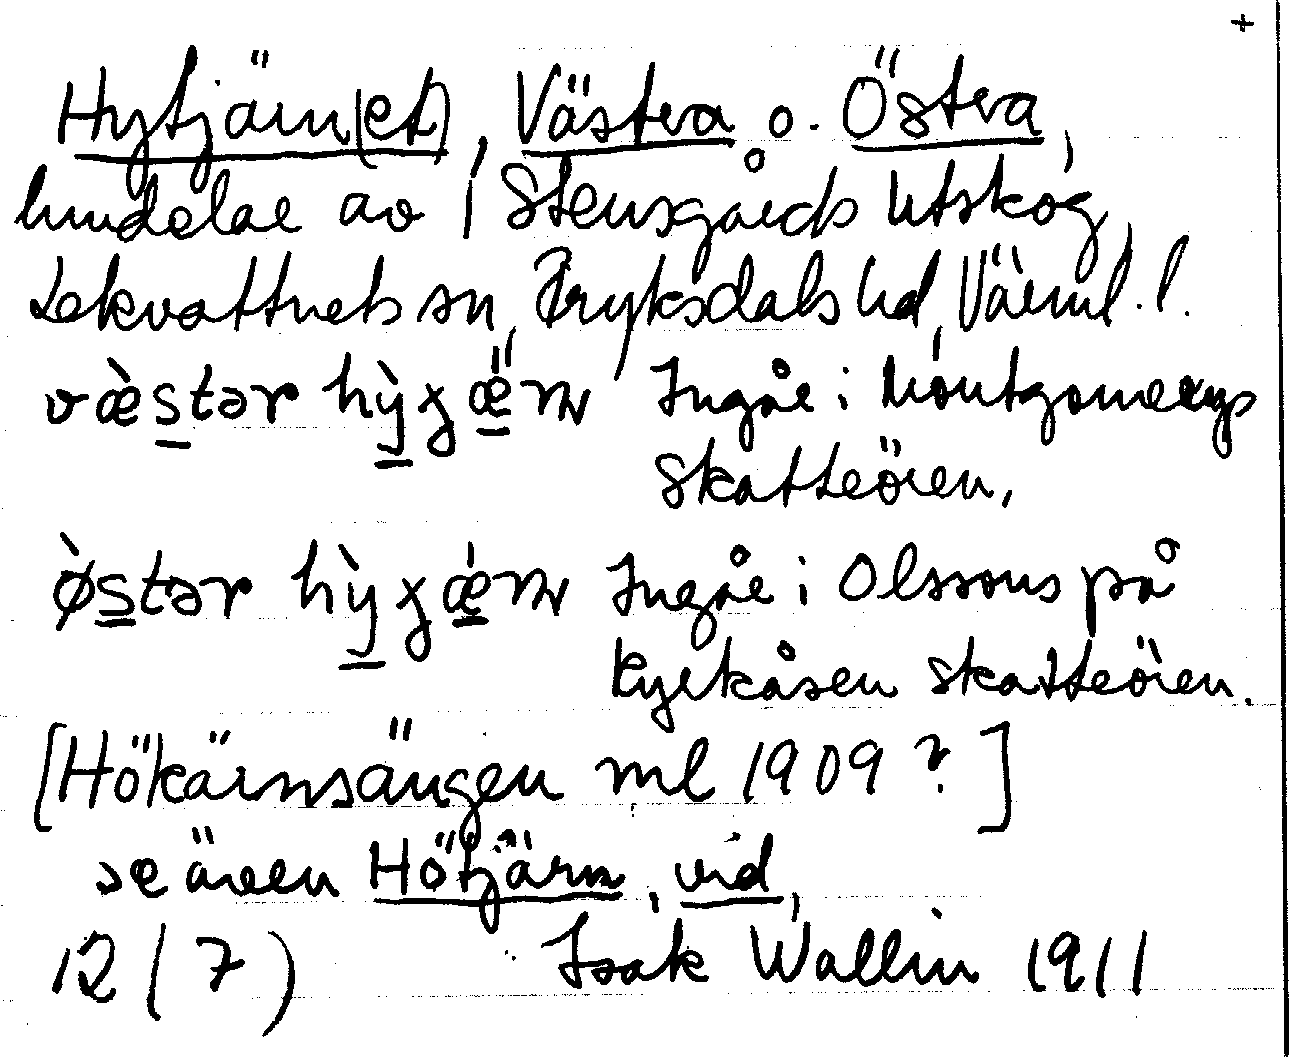 +
Hytjärn(et), Västra o. Östra,
lindelar av i Stensgårds Utskog,
Lekvattnets sn, Fryksdals hd, Värml. l.
væ̀stər hỳɟæ̈ɳ Ingår i Montgomerys
skatteören,
ø̀stər hỳɟæ̀ɳ Ingår i Olssons på
Kyrkåsen skatteören.
[Hökärnsängen ml 1909 ?]
se även Hötjärn, vid,
12 (7) Isak Wallin 1911